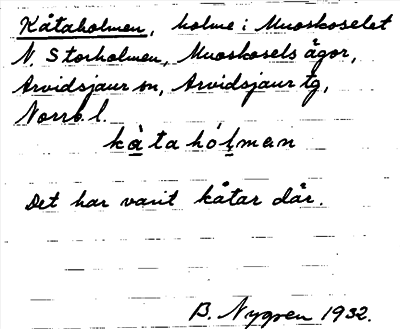 Kåtaholmen, holme i Muoskoselet
N. Storholmen, Muoskosels ägor,
Arvidsjaur sn, Arvidsjaur tg,
Norrb l.
kàta hólmen
Det har varit kåtar där.
B. Nygren 1932.